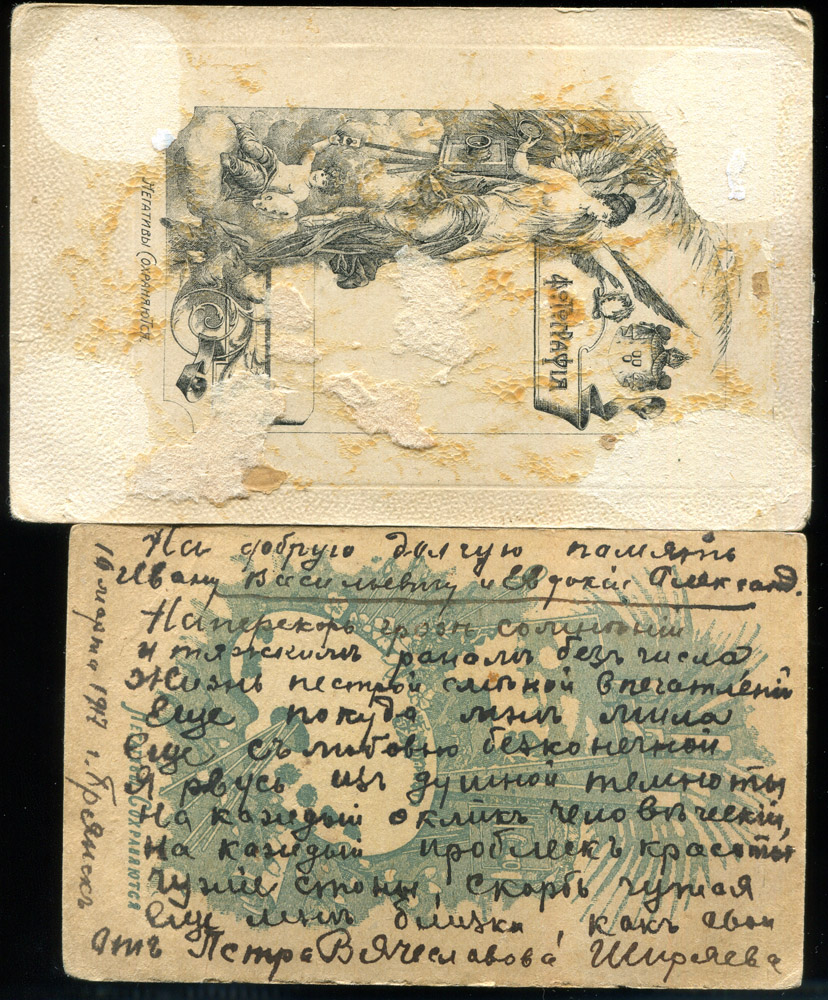 Негативы Сохраняются.
Фотографія
На добрую долгую память
Ивану Васильевичу и Евдокіи Александ.
Наперекорь грозѣ сомнѣній
и тяжкимъ ранамъ безъ числа
Жизнь пестрой смѣной впечатлѣній
Еще покуда мнѣ мила
Еще съ любовью безконечной
Я рвусь изъ душной темноты
На каждый окликъ человѣческій,
На каждый проблескъ красоты
Чужіе стоны, скорбь чужая
Еще мнѣ близки, какъ свои
Отъ Петра Вячеславова Ширяева
марта 1917 г. Брянскъ
Сохраняются